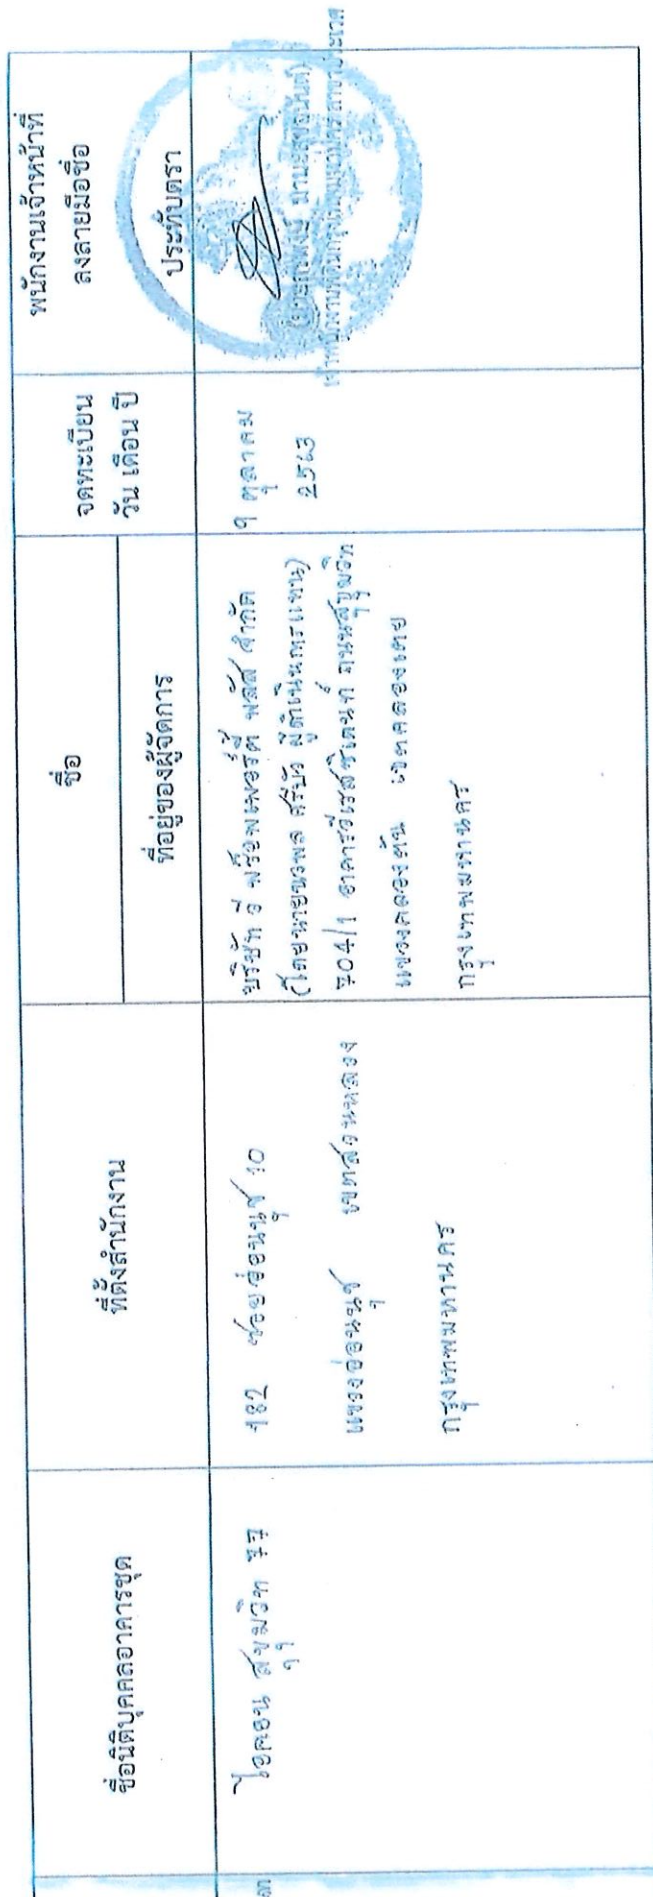 ชื่อนิติบุคคลอาคารชุด
ที่ตั้งสำนักงาน
ชื่อ
ที่อยู่ของผู้จัดการ
จดทะเบียน
วัน เดือน ปี
พนักงานเจ้าหน้าที่
ลงลายมือชื่อ
ประทับตรา
ไอคอน สุขุมวิท 77
182 ซอยอ่อนนุช 10
แขวงอ่อนนุช เขตสวนหลวง
กรุงเทพมหานคร
บริษัท วี พร็อพเพอร์ตี้ พลัส จำกัด
(โดยนายนวพล ศรีบัว ผู้ดำเนินการแทน)
704/1 อาคารวีเรสซิเดนท์ ถนนสุขุมวิท
แขวงคลองตัน เขตคลองเตย
กรุงเทพมหานคร
9 ตุลาคม
2563